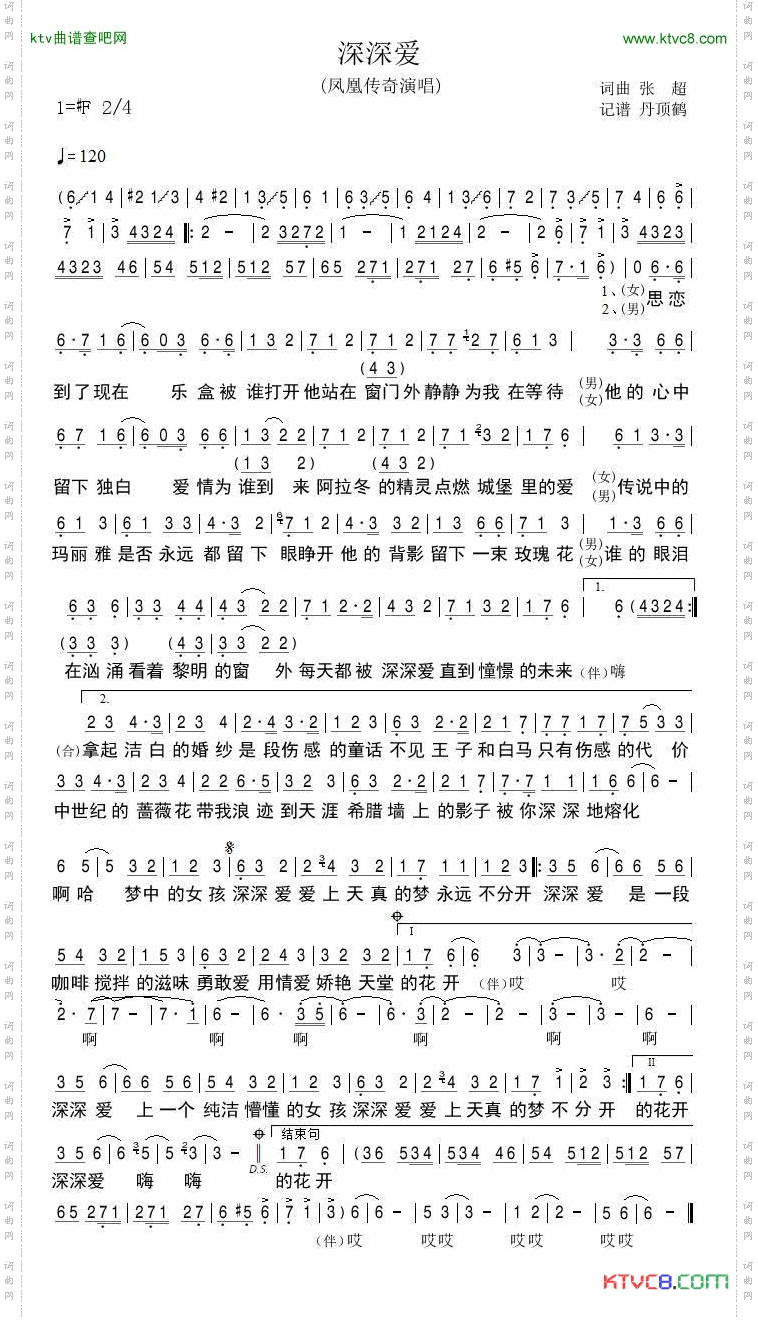 ktv曲谱查吧网
www.ktvc8.com
深深爱
(凤凰传奇演唱)
词曲 张 超
1=#F 2/4
记谱 丹顶鹤
♩=120
(6 1 4 | #2 1 3 | 4 #2 | 1 3 5 | 6 1 | 6 3 5 | 6 4 | 1 3 6 | 7 2 | 7 3 5 | 7 4 | 6 6 |
7 1 | 3 4324 |: 2 - | 2 3272 | 1 - | 1 2124 | 2 - | 2 6 | 7 1 | 3 4323 |
4323 46 | 54 512 | 512 57 | 65 271 | 271 27 | 6 #5 6 | 7·1 6) | 0 6·6 |
1、(女)思恋
2、(男)
6·7 16 | 603 6·6 | 132 | 712 | 712 | 77 27 | 613 | 3·3 66 |
(43)
到了现在 乐盒被 谁打开他站在 窗门外静静为我 在等待 (男)他的心中
(女)
67 16 | 603 66 | 13 22 | 712 | 712 | 71 32 | 176 | 61 3·3 |
(13 2) (432)
留下 独白 爱情为 谁到 来阿拉冬的精灵点燃 城堡 里的爱 (女)传说中的
(男)
61 3 | 61 33 | 4·3 2 | 712 | 4·3 2 | 13 66 | 71 3 | 1·3 66 |
玛丽雅是否永远 都留下 眼睁开他的背影留下一束玫瑰花 (男)谁的眼泪
(女)
1.
63 6 | 33 44 | 43 22 | 71 2·2 | 432 | 7132 | 176 | 6 (4324 :|
(33 3) (43 | 33 22)
在汹涌看着 黎明的窗 外 每天都被 深深爱直到憧憬的未来 (伴)嗨
2.
23 4·3 | 23 4 | 2·4 3·2 | 123 | 63 2·2 | 217 | 77 17 | 7533 |
(合)拿起洁白的婚纱是段伤感的童话不见王子和白马只有伤感的代 价
33 4·3 | 234 | 22 6·5 | 32 2 | 63 2·2 | 217 | 7·7 1 | 166 | 6 - |
中世纪的 蔷薇花带我浪迹到天涯 希腊墙上的影子被你深深地熔化
𝄋
6 5 | 5 32 | 12 3 | 63 2 | 2 4 32 | 17 11 | 123 |: 35 6 | 66 56 |
啊哈 梦中的女孩深深爱爱上天真的梦永远不分开 深深爱 是一段
I
54 32 | 153 | 632 | 243 | 332 32 | 176 | 6 3 | 3 - | 3·2 | 2 - |
咖啡搅拌的滋味勇敢爱用情爱娇艳天堂的花开 (伴)哎 哎
2·7 | 7 - | 7·1 | 6 - | 6·35 | 6 - | 6·3 | 2 - | 2 - | 3 - | 3 - | 6 - |
啊 啊 啊 啊 啊 啊
II
35 6 | 66 56 | 54 32 | 122 32 | 123 | 632 | 2 4 32 | 17 1 | 2 3 :| 176 |
深深爱 上一个纯洁懵懂的女孩深深爱爱上天真的梦不分开 的花开
结束句
35 6 | 6 5 | 5 3 | 3 - ‖ 17 6 | (36 534 | 534 46 | 54 512 | 512 57 |
D.S.
深深爱 嗨 嗨 的花开
65 271 | 271 27 | 6 #5 6 | 7 1 | 3) 6 | 6 - | 53 3 | 3 - | 12 2 | 2 - | 56 6 | 6 - ‖
(伴)哎 哎哎 哎哎 哎哎
KTVC8.COM
词曲网